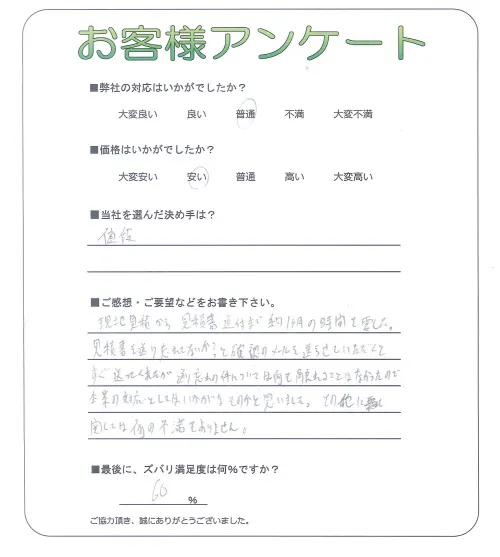 お客様アンケート
■弊社の対応はいかがでしたか？
大変良い 良い 普通 不満 大変不満
■価格はいかがでしたか？
大変安い 安い 普通 高い 大変高い
■当社を選んだ決め手は？
値段
■ご感想・ご要望などをお書き下さい。
現地見積から 見積書送付まで 約1ヶ月の時間を要した。
見積書を送り忘れてないか?と確認のメールを送らせていただくと
すぐ送ってくれたが 送り忘れの件については何も触れることはなかったので
企業の対応としてはいかがなものかと思いました。その他に
関しては何の不満もありません。
■最後に、ズバリ満足度は何%ですか？
60 %
ご協力頂き、誠にありがとうございました。